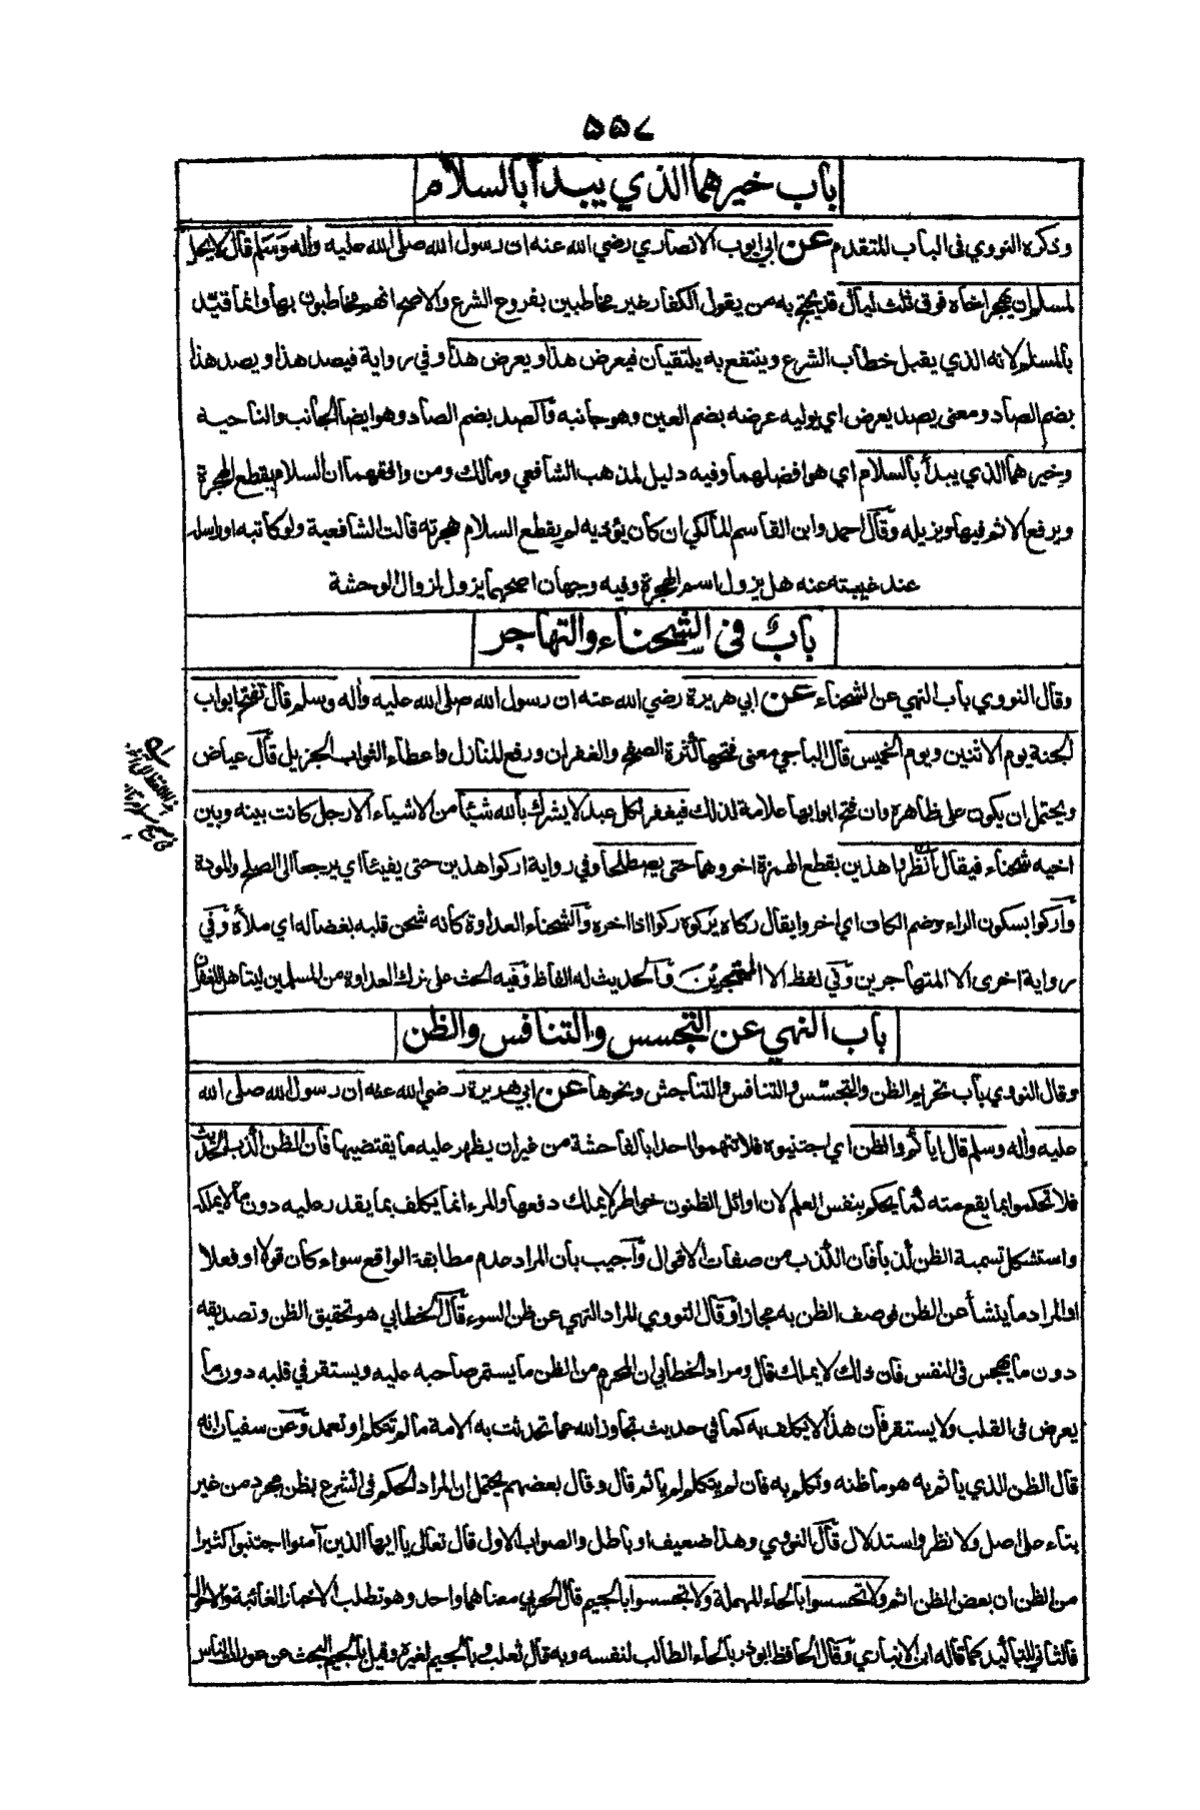 ۵۵۷
باب خيرهما الذي يبدأ بالسلام
وذكره النووي فى الباب المتقدم عن ابي ايوب الانصاري رضي الله عنه ان رسول الله صلى الله عليه وآله وسلم قال لا يحل
لمسلم ان يهجر اخاه فوق ثلث ليال قد يحتج به من يقول الكفار غير مخاطبين بفروع الشرع والاصح انهم مخاطبون بها وانما قيّد
بالمسلم لانه الذي يقبل خطاب الشرع وينتفع به يلتقيان فيعرض هذا ويعرض هذا وفي رواية فيصد هذا ويصد هذا
بضم الصاد ومعنى يصد يعرض اي يوليه عرضه بضم العين وهو جانبه والصد بضم الصاد وهو ايضا الجانب والناحية
وخيرهما الذي يبدأ بالسلام اي هو افضلهما وفيه دليل لمذهب الشافعي ومالك ومن وافقهما ان السلام يقطع الهجرة
ويرفع الاثم فيها ويزيله وقال احمد وابن القاسم المالكي ان كان يؤذيه لم يقطع السلام هجرته قالت الشافعية ولو كاتبه او راسله
عند غيبته عنه هل يزول اسم الهجرة وفيه وجهان اصحهما يزول لزوال الوحشة
باب فى الشحناء والتهاجر
وقال النووي باب النهي عن الشحناء عن ابي هريرة رضي الله عنه ان رسول الله صلى الله عليه وآله وسلم قال تفتح ابواب
الجنة يوم الاثنين ويوم الخميس قال الباجي معنى فتحها كثرة الصفح والغفران ورفع المنازل واعطاء الثواب الجزيل قال عياض
ويحتمل ان يكون على ظاهره وان فتح ابوابها علامة لذلك فيغفر لكل عبد لا يشرك بالله شيئا من الاشياء الا رجل كانت بينه وبين
اخيه شحناء فيقال انظروا هذين بقطع الهمزة اخروهما حتى يصطلحا وفي رواية اركوا هذين حتى يفيئا اي يرجعا الى الصلح والمودة
واركوا بسكون الراء وضم الكاف اي اخروا يقال ركاه يركوه ركوا اذا اخره والشحناء العداوة كانه شحن قلبه بغضا له اي ملأه وفي
رواية اخرى الا المتهاجرين وفي لفظ الا المهتجرين والحديث له الفاظ وفيه الحث على ترك العداوة من المسلمين ليتاهل للغفران
باب النهي عن التجسس والتنافس والظن
وقال النووي باب تحريم الظن والتجسّس والتنافس والتناجش ونحوها عن ابي هريرة رضي الله عنه ان رسول الله صلى الله
عليه وآله وسلم قال اياكم والظن اي اجتنبوه فلا تتهموا احدا بالفاحشة من غير ان يظهر عليه ما يقتضيها فان الظن اكذب الحديث
فلا تحكموا بما يقع منه كما يحكم بنفس العلم لان اوائل الظنون خواطر لا يملك دفعها والمرء انما يكلف بما يقدر عليه دون ما لا يملكه
واستشكل تسمية الظن كذبا فان الكذب من صفات الاقوال واجيب بان المراد عدم مطابقة الواقع سواء كان قولا او فعلا
او المراد ما ينشأ عن الظن فوصف الظن به مجازا وقال النووي المراد النهي عن ظن السوء قال الخطابي هو تحقيق الظن وتصديقه
دون ما يهجس فى النفس فان ذلك لا يملك قال ومراد الخطابي ان المحرم من الظن ما يستمر صاحبه عليه ويستقر في قلبه دون ما
يعرض فى القلب ولا يستقر فان هذا لا يكلف به كما في حديث تجاوز الله عما تحدثت به الامة ما لم تتكلم او تعمد وعن سفيان انه
قال الظن الذي ياثم به هو ما ظنه وتكلم به فان لم يتكلم لم ياثم قال وقال بعضهم يحتمل ان المراد الحكم فى الشرع بظن مجرد من غير
بناء على اصل ولا نظر واستدلال قال النووي وهذا ضعيف او باطل والصواب الاول قال تعالى يا ايها الذين آمنوا اجتنبوا كثيرا
من الظن ان بعض الظن اثم ولا تحسسوا بالحاء المهملة ولا تجسسوا بالجيم قال الحربي معناهما واحد وهو تطلب الاخبار الغائبة والاحوال
فالثاني للتاكيد كما قاله ابن الانباري وقال الحافظ ابو ذر بالحاء الطالب لنفسه وبه قال ثعلب وبالجيم لغيره وقيل بالجيم البحث عن عورات الناس